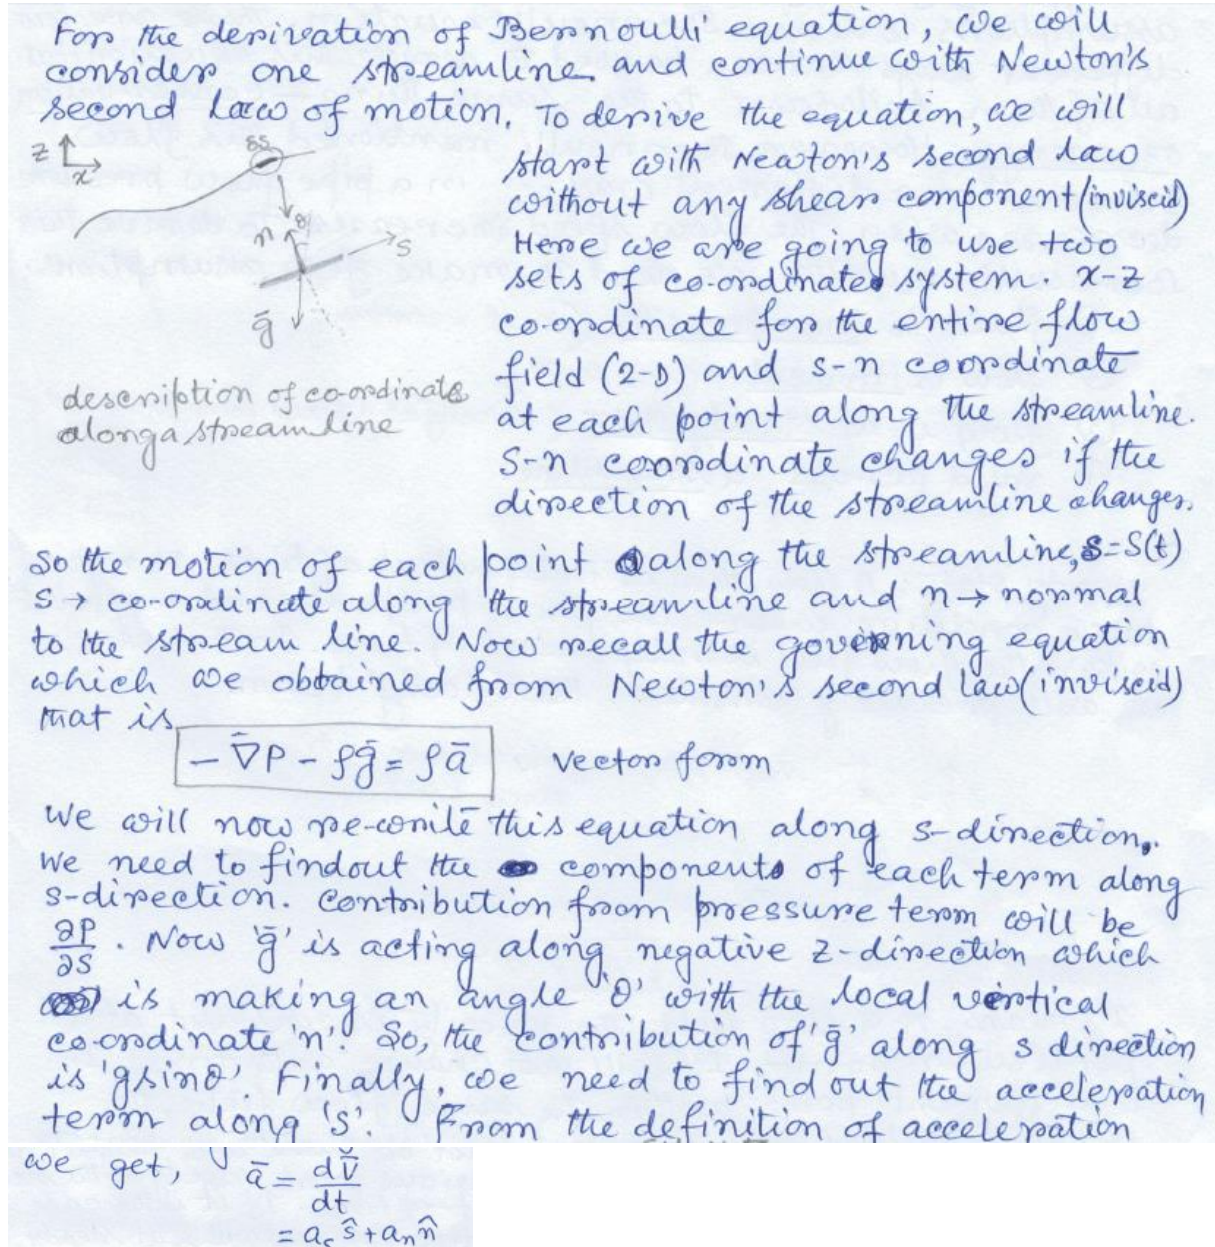 For the derivation of Bernoulli equation, we will
consider one streamline and continue with Newton's
second law of motion. To derive the equation, we will
start with Newton's second law
without any shear component (inviscid)
Here we are going to use two
sets of co-ordinate system. x-z
co-ordinate for the entire flow
field (2-D) and s-n coordinate
at each point along the streamline.
S-n coordinate changes if the
direction of the streamline changes.
z
x
δs
θ
n
s
ḡ
description of co-ordinate
along a streamline
So the motion of each point along the streamline, s=S(t)
S → co-ordinate along the streamline and n → normal
to the stream line. Now recall the governing equation
which we obtained from Newton's second law (inviscid)
that is
- ∇̄P - ρḡ = ρā vector form
We will now re-write this equation along s-direction.
We need to findout the components of each term along
s-direction. Contribution from pressure term will be
∂P/∂S. Now 'ḡ' is acting along negative z-direction which
is making an angle 'θ' with the local vertical
co-ordinate 'n'. So, the contribution of 'ḡ' along s direction
is 'gsinθ'. Finally, we need to find out the acceleration
term along 's'. From the definition of acceleration
we get, ā = dV̄/dt
= aₛ ŝ + aₙ n̂